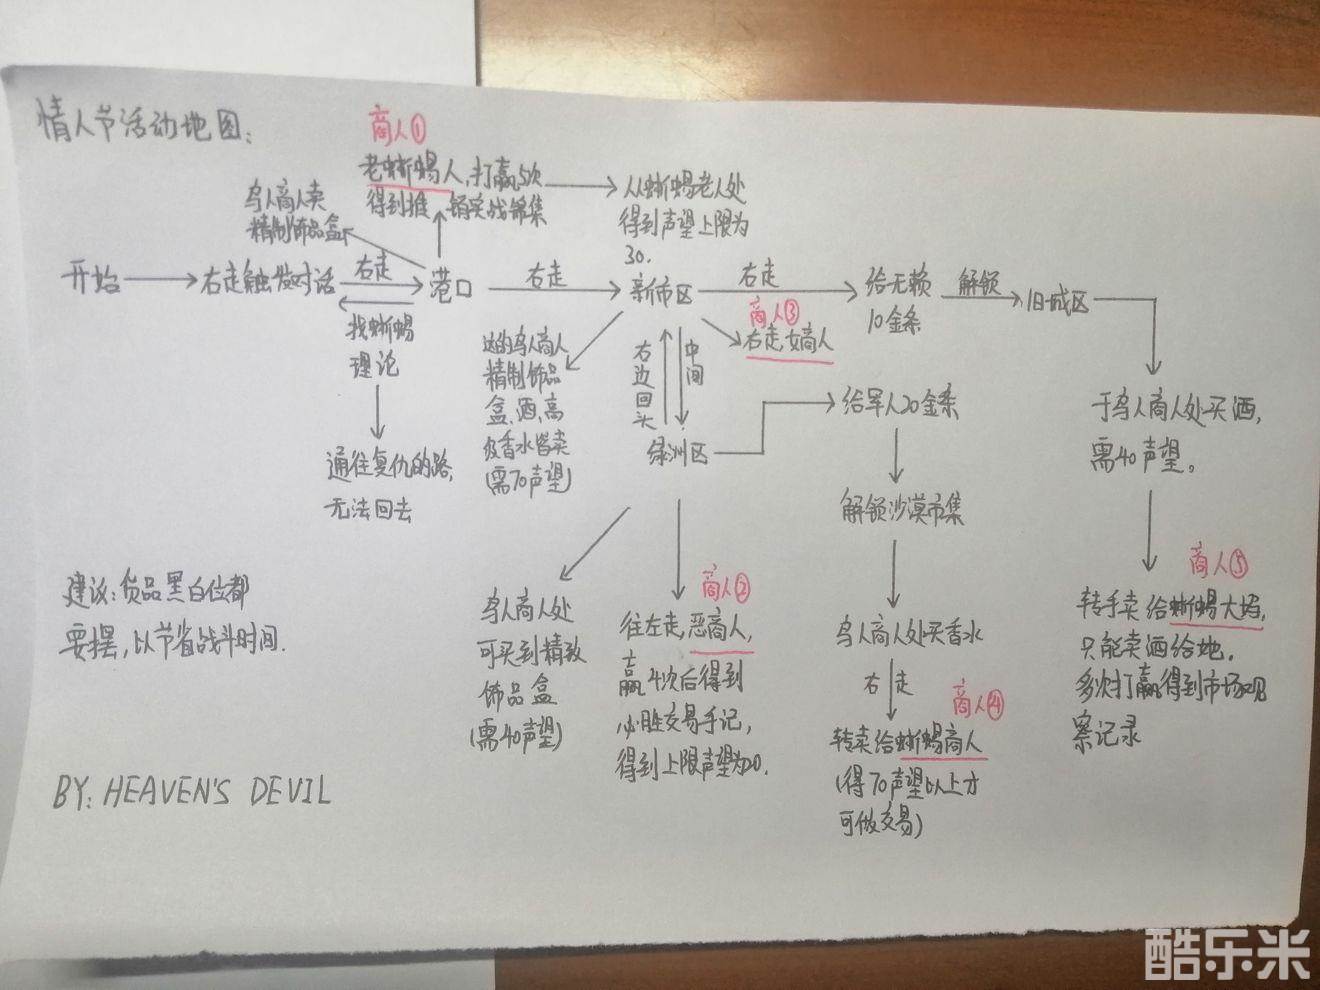 情人节活动地图:
商人①
老蜥蜴人,打赢5次
得到推 销实战锦集
从蜥蜴老人处
得到声望上限为
30.
鸟人商人卖
精制饰品盒
开始
右走触发对话
右走
港口
右走
新市区
右走
给无赖
10金条
解锁
旧城区
找蜥蜴
理论
通往复仇的路,
无法回去
这的鸟人商人
精制饰品
盒,酒,高
级香水皆卖
(需70声望)
右边回头
中间
商人③
右走,女商人
绿洲区
给军人20金条
于鸟人商人处买酒,
需40声望。
解锁沙漠市集
建议:货品黑白位都
要摆,以节省战斗时间.
鸟人商人处
可买到精致
饰品盒
(需40声望)
商人②
往左走,恶商人,
赢4次后得到
必胜交易手记,
得到上限声望为20.
鸟人商人处买香水
右走
商人④
转卖给蜥蜴商人
(得70声望以上才
可做交易)
商人⑤
转手卖给蜥蜴大妈,
只能卖酒给她.
多次打赢得到市场观
察记录
BY: HEAVEN'S DEVIL
酷乐米